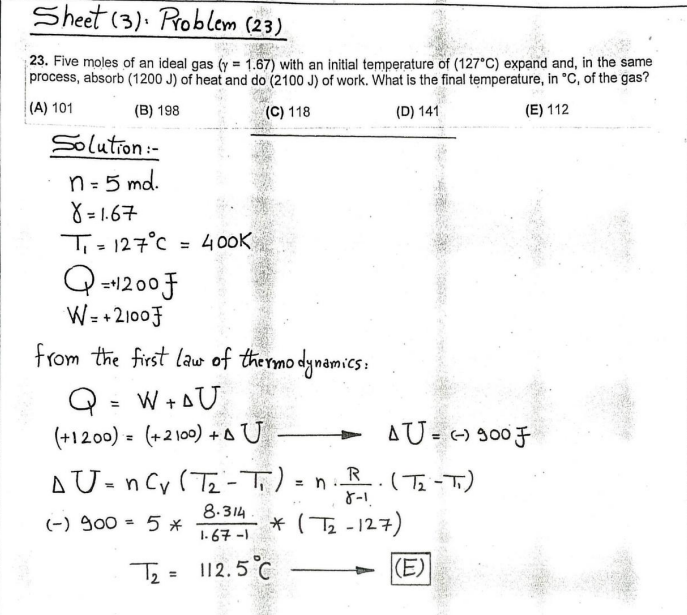 Sheet (3): Problem (23)
23. Five moles of an ideal gas (γ = 1.67) with an initial temperature of (127°C) expand and, in the same
process, absorb (1200 J) of heat and do (2100 J) of work. What is the final temperature, in °C, of the gas?
(A) 101 (B) 198 (C) 118 (D) 141 (E) 112
Solution:-
n = 5 mol.
γ = 1.67
T₁ = 127°C = 400K
Q = +1200 J
W = +2100 J
from the first law of thermodynamics:
Q = W + ΔU
(+1200) = (+2100) + ΔU → ΔU = (-) 900 J
ΔU = n Cv (T₂ - T₁) = n . R/γ-1 . (T₂ - T₁)
(-) 900 = 5 * 8.314/1.67-1 * (T₂ - 127)
T₂ = 112.5°C → (E)